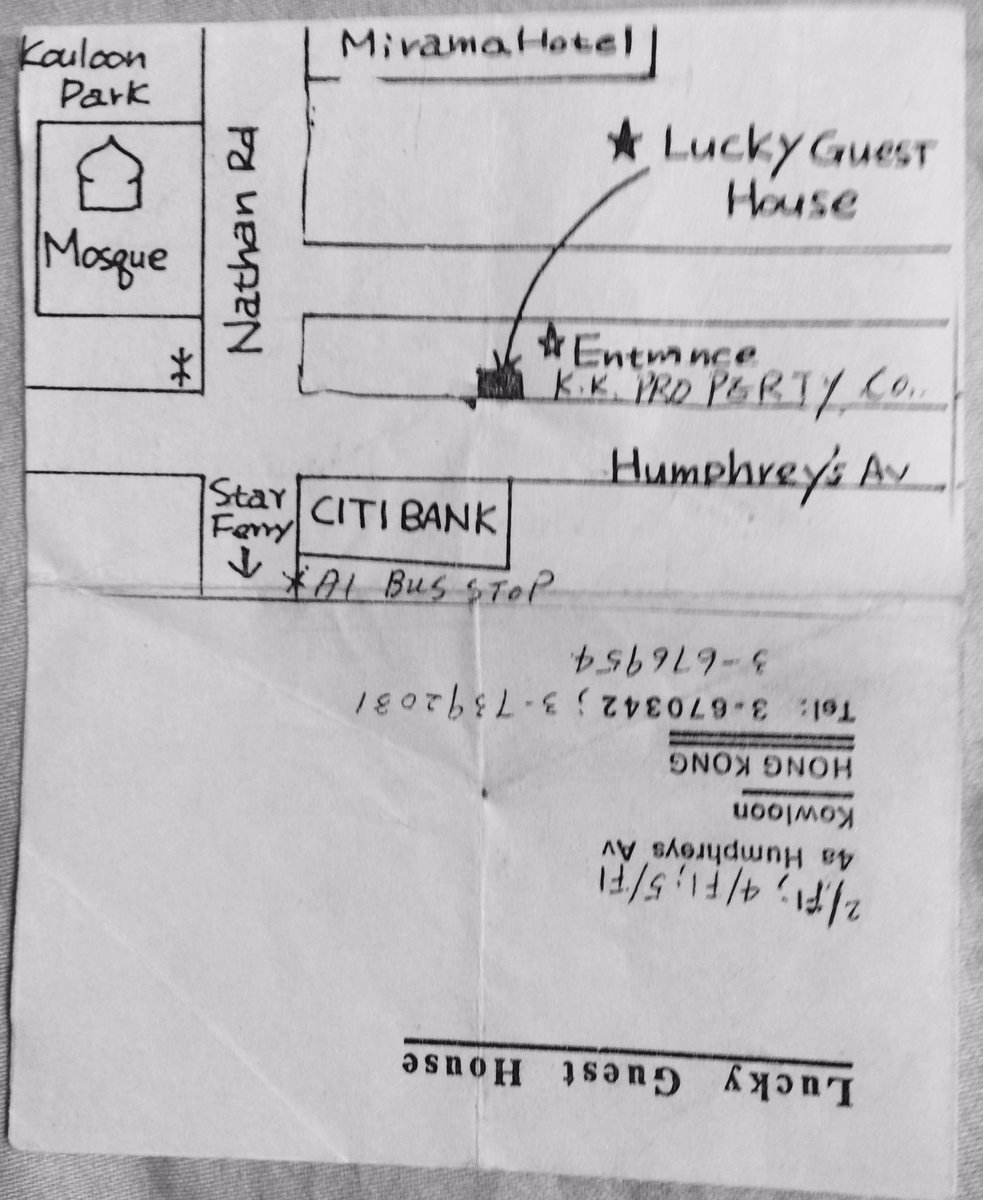 Mirama Hotel
Kouloon
Park
★ Lucky Guest
House
Nathan Rd
Mosque
☆ Entrnnce
K.K. PROPERTY Co..
Humphrey's Av
Star
Ferry
↓
CITI BANK
*A1 BUS STOP
Lucky Guest House
2/Fl; 4/Fl; 5/Fl
4a Humphreys Av
Kowloon
HONG KONG
Tel: 3-670342; 3-7392031
3-676954